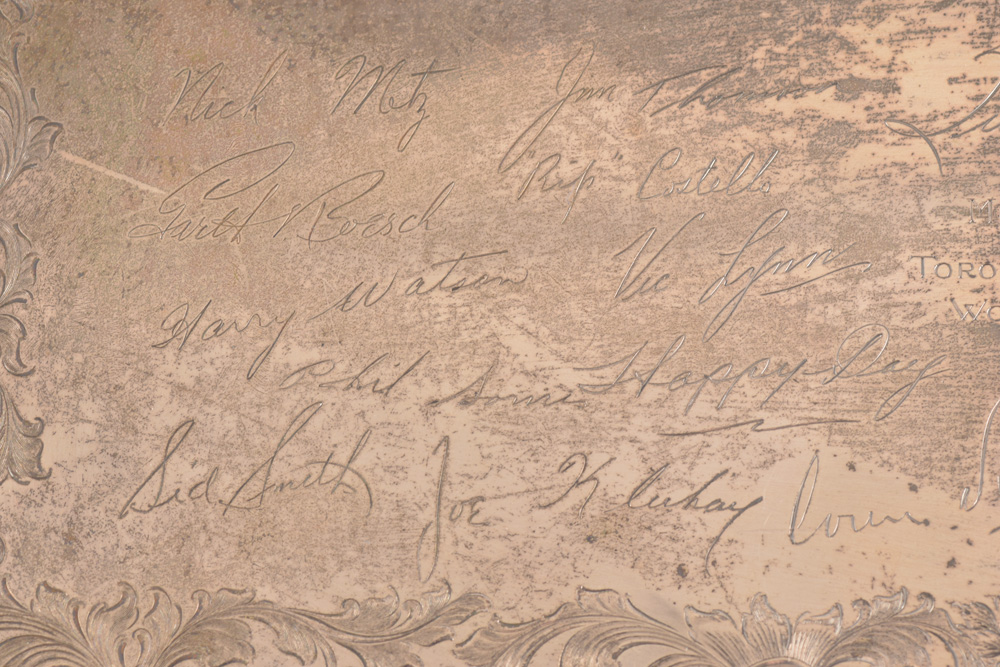 Nick Metz Jim Thomson
Garth V. Boesch "Rip" Costello
Harry Watson Vic Lynn
TORO
Phil Happy Day
Sid. Smith Joe Klukay